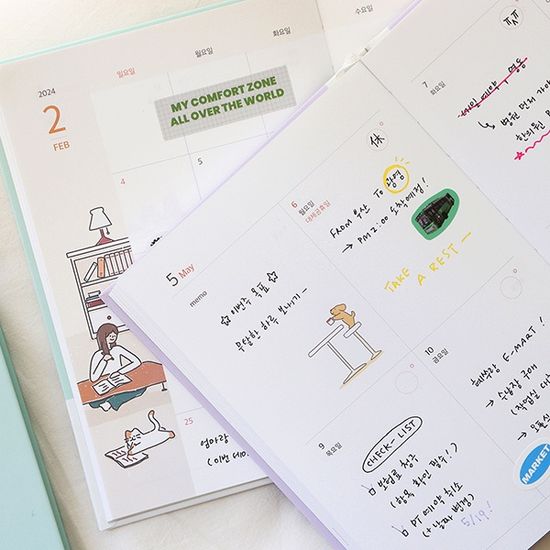 2024
2
FEB
일요일
월요일
화요일
수요일
MY COMFORT ZONE
ALL OVER THE WORLD
4
5
25
엄마랑
5 May
memo
☆ 이번주 목표 ☆
무탈한 하루 보내기~
6
월요일
대체공휴일
休
FROM 부산 TO 광명
→ PM 2:00 도착예정!
TAKE
A REST ~
7
화요일
→ 병원 먼저
한의원
9
목요일
CHECK-LIST
보험료 청구
(항목 확인 필수!)
PT 예약 취소
(+ 날짜 변경)
5/19!
10
금요일
E-MART!
→ 수납장 구매
(작업실
MARKET